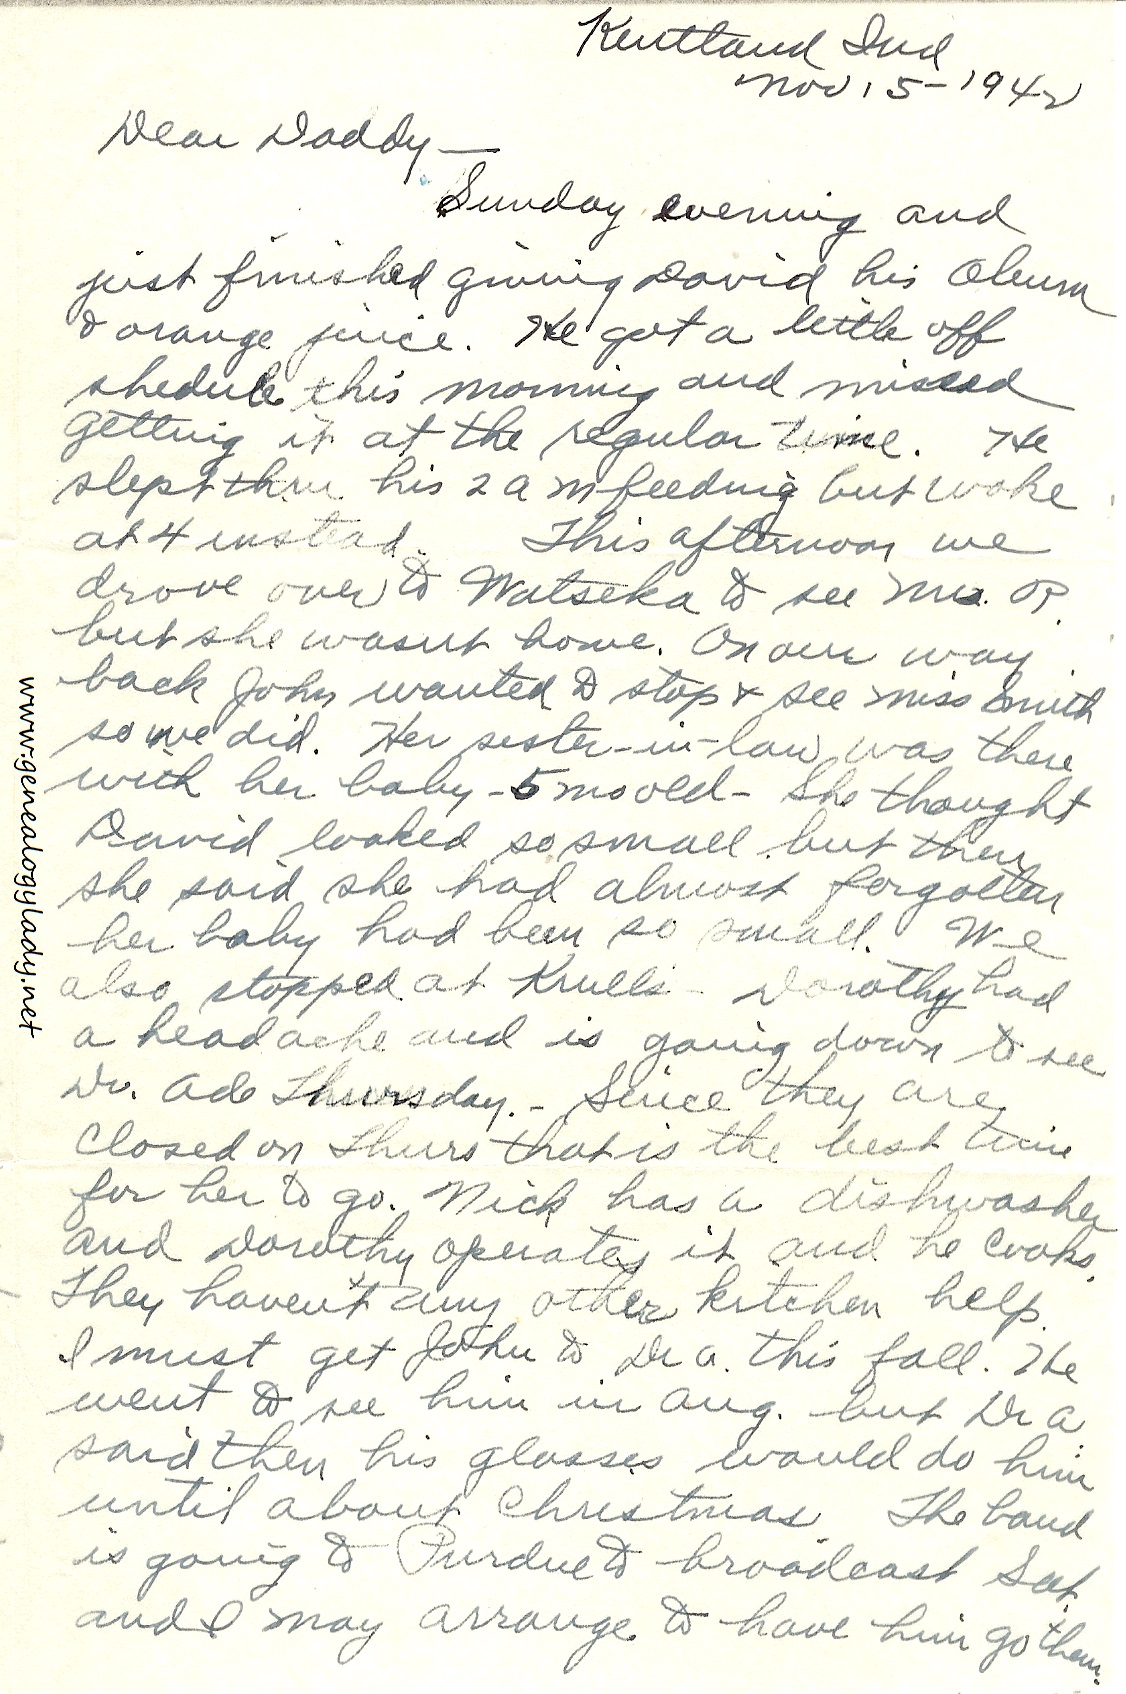 Kentland Ind
Nov 15-1942
Dear Daddy—
Sunday evening and
just finished giving David his Oleum
& orange juice. He got a little off
shedule this morning and missed
getting it at the regular time. He
slept thru his 2 a m feeding but woke
at 4 instead. This afternoon we
drove over to Watseka to see Mrs. P.
but she wasnt home. On our way
back John wanted to stop & see Miss Smith
so we did. Her sister-in-law was there
with her baby - 5 mo old - She thought
David looked so small but then
she said she had almost forgotten
her baby had been so small. We
also stopped at Krulls - Dorothy had
a headache and is going down to see
Dr. Ade Thursday. - Since they are
closed on Thurs that is the best time
for her to go. Nick has a dishwasher
and Dorothy operates it and he cooks.
They haven't any other kitchen help.
I must get John to Dr a. this fall. He
went to see him in Aug. but Dr a
said then his glasses would do him
until about Christmas. The band
is going to Purdue to broadcast Sat.
and I may arrange to have him go then.
www.genealogylady.net